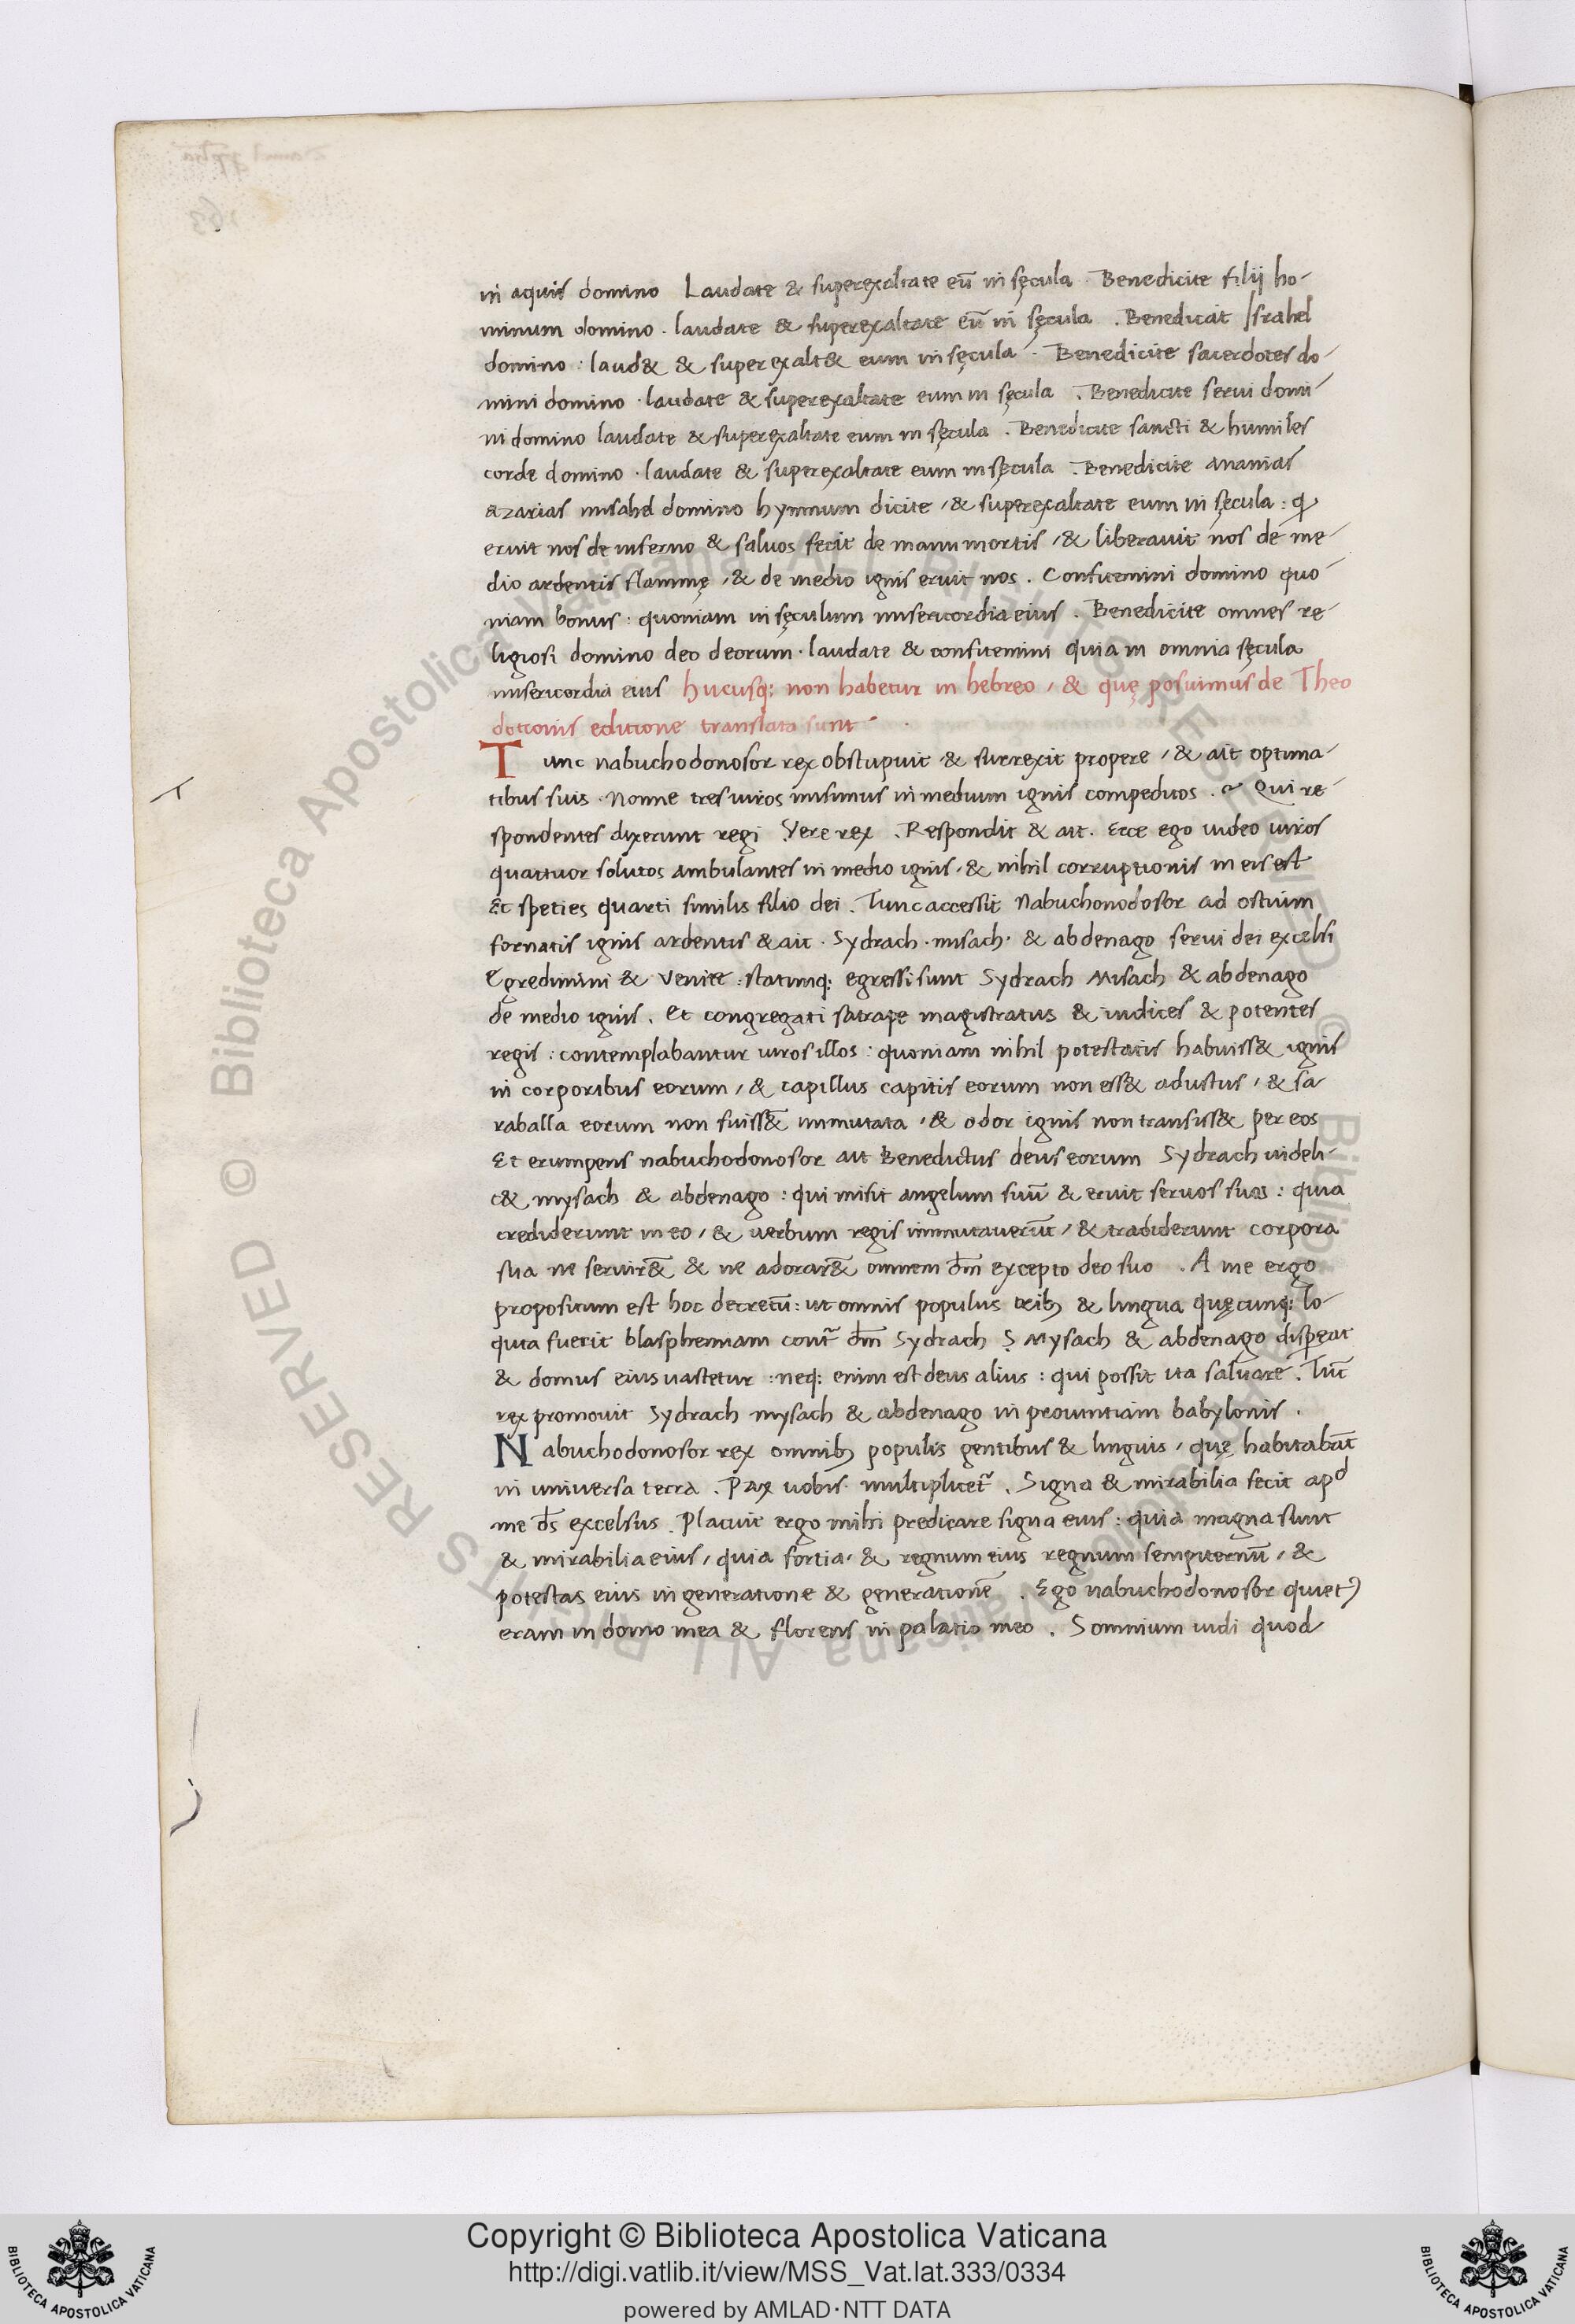 in aquis domino Laudate & superexaltate eū in sęcula . Benedicite filij ho-
minum domino . laudate & superexaltate eū in sęcula . Benedicat Israhel
domino : laud& & superexalt& eum in sęcula . Benedicite sacerdotes do-
mini domino . laudate & superexaltate eum in sęcula . Benedicite servi domi-
ni domino laudate & superexaltate eum in sęcula . Benedicite sancti & humiles
corde domino . laudate & superexaltate eum in sęcula . Benedicite ananias
azarias misahel domino hymnum dicite / & superexaltate eum in sęcula : ꝙ
eruit nos de inferno & saluos fecit de manu mortis / & liberauit nos de me-
dio ardentis flammę / & de medio ignis eruit nos . Confitemini domino quo-
niam bonus : quoniam in sęculum misericordia eius . Benedicite omnes re-
ligiosi domino deo deorum . laudate & confitemini quia in omnia sęcula
misericordia eius hucusq; non habetur in hebreo / & quę posuimus de Theo
dotionis editione translata sunt
Tunc nabuchodonosor rex obstupuit & surrexit propere / & ait optima-
tibus suis . Nonne tres uiros misimus in medium ignis compeditos . Qui re-
spondentes dixerunt regi . Vere rex . Respondit & ait . Ecce ego uideo uiros
quattuor solutos ambulantes in medio ignis . & nihil corruptionis in eis est
Et speties quarti similis filio dei . Tunc accessit Nabuchonodosor ad ostium
fornatis ignis ardentis & ait . Sydrach . misach . & abdenago servi dei excelsi
Egredimini & Venite : statimq; egressi sunt Sydrach Misach & abdenago
de medio ignis . Et congregati satrape magistratus & iudices & potentes
regis : contemplabantur uiros illos : quoniam nihil potestatis habuiss& ignis
in corporibus eorum / & capillus capitis eorum non ess& adustus / & sa
raballa eorum non fuiss&̄ immutata / & odor ignis non transiss& per eos
Et erumpens nabuchodonosor ait Benedictus deus eorum Sydrach uideli-
c& mysach & abdenago : qui misit angelum suū & eruit seruos suos : quia
crediderunt in eo / & uerbum regis immutauerūt / & tradiderunt corpora
sua ne seruir&̄ & ne adorar&̄ omnem dm̄ excepto deo suo . A me ergo
propositum est hoc decretū : ut omnis populus tribꝫ & lingua quęcunq; lo-
quta fuerit blasphemiam cont̄ dm̄ Sydrach Mysach & abdenago disꝑeat
& domus eius uastetur : neq; enim est deus alius : qui possit ita saluare . Tūc
rex promouit Sydrach mysach & abdenago in prouintiam babylonis .
Nabuchodonosor rex omnibꝫ populis gentibus & linguis / quę habitabāt
in universa terra . Pax uobis multiplicet̄ . Signa & mirabilia fecit apd
me ds̄ excelsus . Placuit ergo mihi predicare signa eius : quia magna sunt
& mirabilia eius / quia fortia / & regnum eius regnum sempiternū / &
potestas eius in generatione & generationē . Ego nabuchodonosor quietꝰ
eram in domo mea & florens in palatio meo . Somnium uidi quod
Copyright © Biblioteca Apostolica Vaticana
http://digi.vatlib.it/view/MSS_Vat.lat.333/0334
powered by AMLAD·NTT DATA